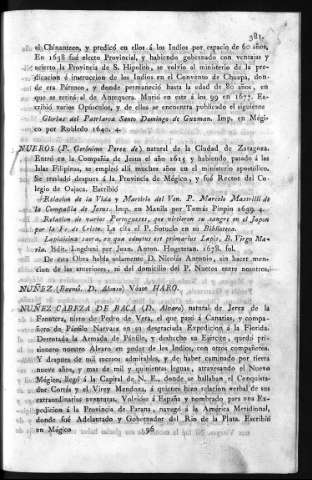 381
el Chinanteco, y predicó en ellos á los Indios por espacio de 60 años.
En 1638 fué electo Provincial, y habiendo gobernado con ventajas y
acierto la Provincia de S. Hipolito, se volvió al ministerio de la pre-
dicacion é instruccion de los Indios en el Convento de Choapa, don-
de era Párroco, y donde permaneció hasta la edad de 80 años, en
que se retiró al de Antequera. Murió en este á los 99 en 1677. Es-
cribió varios Opúsculos, y de ellos se encuentra publicado el siguiente
Glorias del Patriarca Santo Domingo de Guzman. Imp. en Mégi-
co por Robledo 1640. 4.
NUEROS (P. Gerónimo Perez de) natural de la Ciudad de Zaragoza.
Entró en la Compañia de Jesus el año 1615 y habiendo pasado á las
Islas Filipinas, se empleó allí muchos años en el ministerio apostólico.
Se trasladó despues á la Provincia de Mégico, y fué Rector del Co-
legio de Oajaca. Escribió
Relacion de la Vida y Martirio del Ven. P. Marcelo Mastrilli de
la Compañia de Jesus. Imp. en Manila por Tomas Pinpin 1639. 4.
Relacion de varios Portugueses, que vertieron su sangre en el Japon
por la Fe de Cristo. La cita el P. Sotuelo en su Biblioteca.
Lapicidina sacra, ex qua eductus est primarius Lapis, B. Virgo Ma-
ria. Edit. Lugduni per Joan. Anton. Huguetan. 1678. fol.
De esta Obra habla solamente D. Nicolás Antonio, sin hacer men-
cion de las anteriores, ni del domicilio del P. Nueros entre nosotros.
NUÑEZ (Bernal. D. Alonso) Véase HARO.
NUÑEZ CABEZA DE BACA (D. Alvaro) natural de Jerez de la
Frontera, nieto de Pedro de Vera, el que ganó á Canarias, y compa-
ñero de Pánfilo Narvaez en su desgraciada Expedicion á la Florida.
Derrotada la Armada de Pánfilo, y deshecho su Ejército, quedó pri-
sionero nuestro Alvaro en poder de los Indios, con otros compañeros.
Y despues de mil sucesos admirables, y de haber caminado por tierra
nueve años, y mas de mil y quinientas leguas, atravesando el Nuevo
Mégico, llegó á la Capital de N. E., donde se hallaban el Conquista-
dor Cortés y el Virey Mendoza, á quienes hizo relacion verbal de sus
extraordinarias aventuras. Volvióse á España y nombrado para una Ex-
pedicion á la Provincia de Parana, navegó á la América Meridional,
donde fué Adelantado y Gobernador del Rio de la Plata. Escribió
en Mégico
96